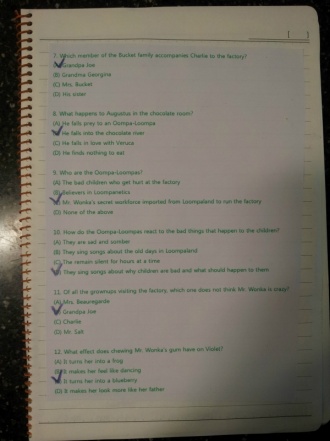 7. Which member of the Bucket family accompanies Charlie to the factory?
(A) Grandpa Joe
(B) Grandma Georgina
(C) Mrs. Bucket
(D) His sister
8. What happens to Augustus in the chocolate room?
(A) He falls prey to an Oompa-Loompa
(B) He falls into the chocolate river
(C) He falls in love with Veruca
(D) He finds nothing to eat
9. Who are the Oompa-Loompas?
(A) The bad children who get hurt at the factory
(B) Believers in Loompanetics
(C) Mr. Wonka's secret workforce imported from Loompaland to run the factory
(D) None of the above
10. How do the Oompa-Loompas react to the bad things that happen to the children?
(A) They are sad and somber
(B) They sing songs about the old days in Loompaland
(C) The remain silent for hours at a time
(D) They sing songs about why children are bad and what should happen to them
11. Of all the grownups visiting the factory, which one does not think Mr. Wonka is crazy?
(A) Mrs. Beauregarde
(B) Grandpa Joe
(C) Charlie
(D) Mr. Salt
12. What effect does chewing Mr. Wonka's gum have on Violet?
(A) It turns her into a frog
(B) It makes her feel like dancing
(C) It turns her into a blueberry
(D) It makes her look more like her father